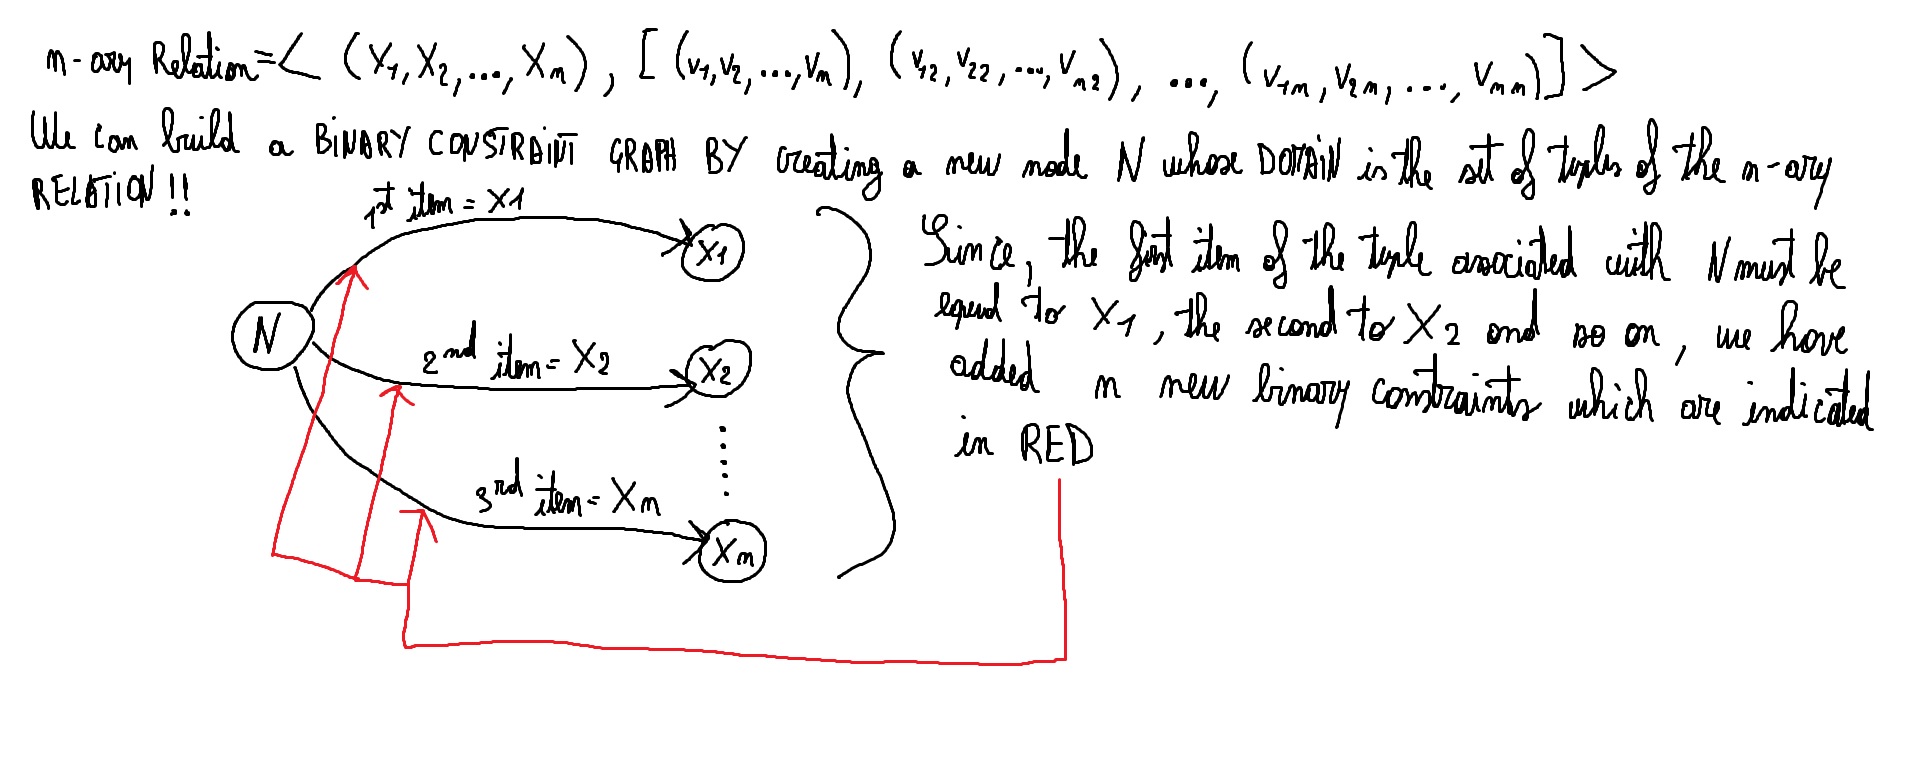 n-ary Relation = < (X1, X2, ..., Xn), [(v1, v2, ..., vn), (v12, v22, ..., vn2), ..., (v1n, v2n, ..., vnn)] >
We can build a BINARY CONSTRAINT GRAPH BY creating a new node N whose DOMAIN is the set of tuples of the n-ary
RELATION!!
1st item = X1
X1
Since, the first item of the tuple associated with N must be
equal to X1, the second to X2 and so on, we have
added n new binary constraints which are indicated
in RED
N
2nd item = X2
X2
3rd item = Xn
Xn